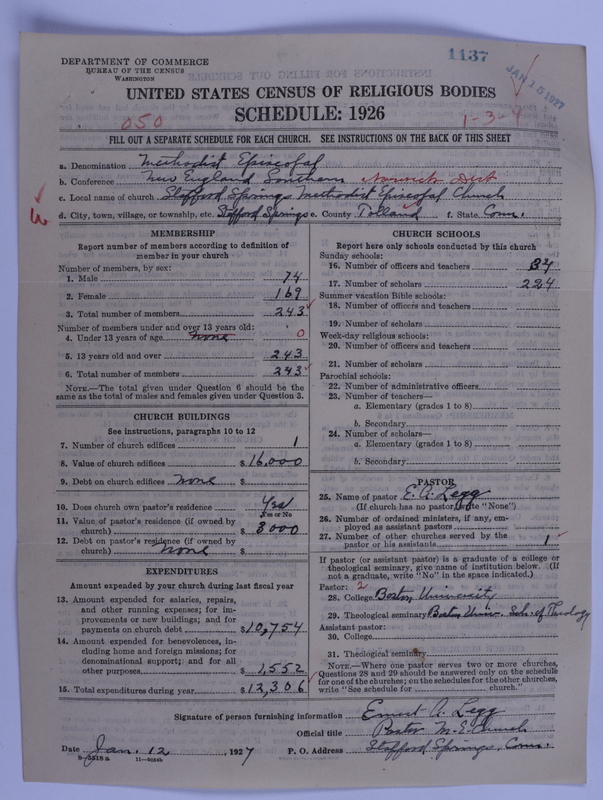 1137
JAN 15 1927
DEPARTMENT OF COMMERCE
BUREAU OF THE CENSUS
WASHINGTON
UNITED STATES CENSUS OF RELIGIOUS BODIES
SCHEDULE: 1926
050
1-3-4
FILL OUT A SEPARATE SCHEDULE FOR EACH CHURCH. SEE INSTRUCTIONS ON THE BACK OF THIS SHEET
a. Denomination Methodist Episcopal
b. Conference New England Southern Norwich Dist
c. Local name of church Stafford Springs Methodist Episcopal Church
d. City, town, village, or township, etc. Stafford Springs e. County Tolland f. State Conn.
3
MEMBERSHIP
Report number of members according to definition of
member in your church
Number of members, by sex:
1. Male 74
2. Female 169
3. Total number of members 243
Number of members under and over 13 years old:
4. Under 13 years of age none 0
5. 13 years old and over 243
6. Total number of members 243
NOTE.—The total given under Question 6 should be
the same as the total of males and females given under Question 3.
CHURCH BUILDINGS
See instructions, paragraphs 10 to 12
7. Number of church edifices 1
8. Value of church edifices $16,000
9. Debt on church edifices none $
10. Does church own pastor's residence Yes
Yes or No
11. Value of pastor's residence (if owned by
church) $3000
12. Debt on pastor's residence (if owned by
church) none $
EXPENDITURES
Amount expended by your church during last fiscal year
13. Amount expended for salaries, repairs,
and other running expenses; for im-
provements or new buildings; and for
payments on church debt $10,754
14. Amount expended for benevolences, in-
cluding home and foreign missions; for
denominational support; and for all
other purposes $1,552
15. Total expenditures during year $12,306
CHURCH SCHOOLS
Report here only schools conducted by this church
Sunday schools:
16. Number of officers and teachers 34
17. Number of scholars 224
Summer vacation Bible schools:
18. Number of officers and teachers
19. Number of scholars
Week-day religious schools:
20. Number of officers and teachers
21. Number of scholars
Parochial schools:
22. Number of administrative officers
23. Number of teachers—
a. Elementary (grades 1 to 8)
b. Secondary
24. Number of scholars—
a. Elementary (grades 1 to 8)
b. Secondary
PASTOR
25. Name of pastor E. A. Legg
(If church has no pastor, write "None")
26. Number of ordained ministers, if any, em-
ployed as assistant pastors
27. Number of other churches served by the
pastor or his assistants 1
If pastor (or assistant pastor) is a graduate of a college or
theological seminary, give name of institution below. (If
not a graduate, write "No" in the space indicated.)
Pastor: 2
28. College Boston University
29. Theological seminary Boston Univ. Sch. of Theology
Assistant pastor:
30. College
31. Theological seminary
NOTE.—Where one pastor serves two or more churches,
Questions 28 and 29 should be answered only on the schedule
for one of the churches; on the schedules for the other churches,
write "See schedule for church."
Signature of person furnishing information Ernest A. Legg
Official title Pastor M. E. Church
Date Jan. 12, 1927 P. O. Address Stafford Springs, Conn.
8-5518a 11-9054b